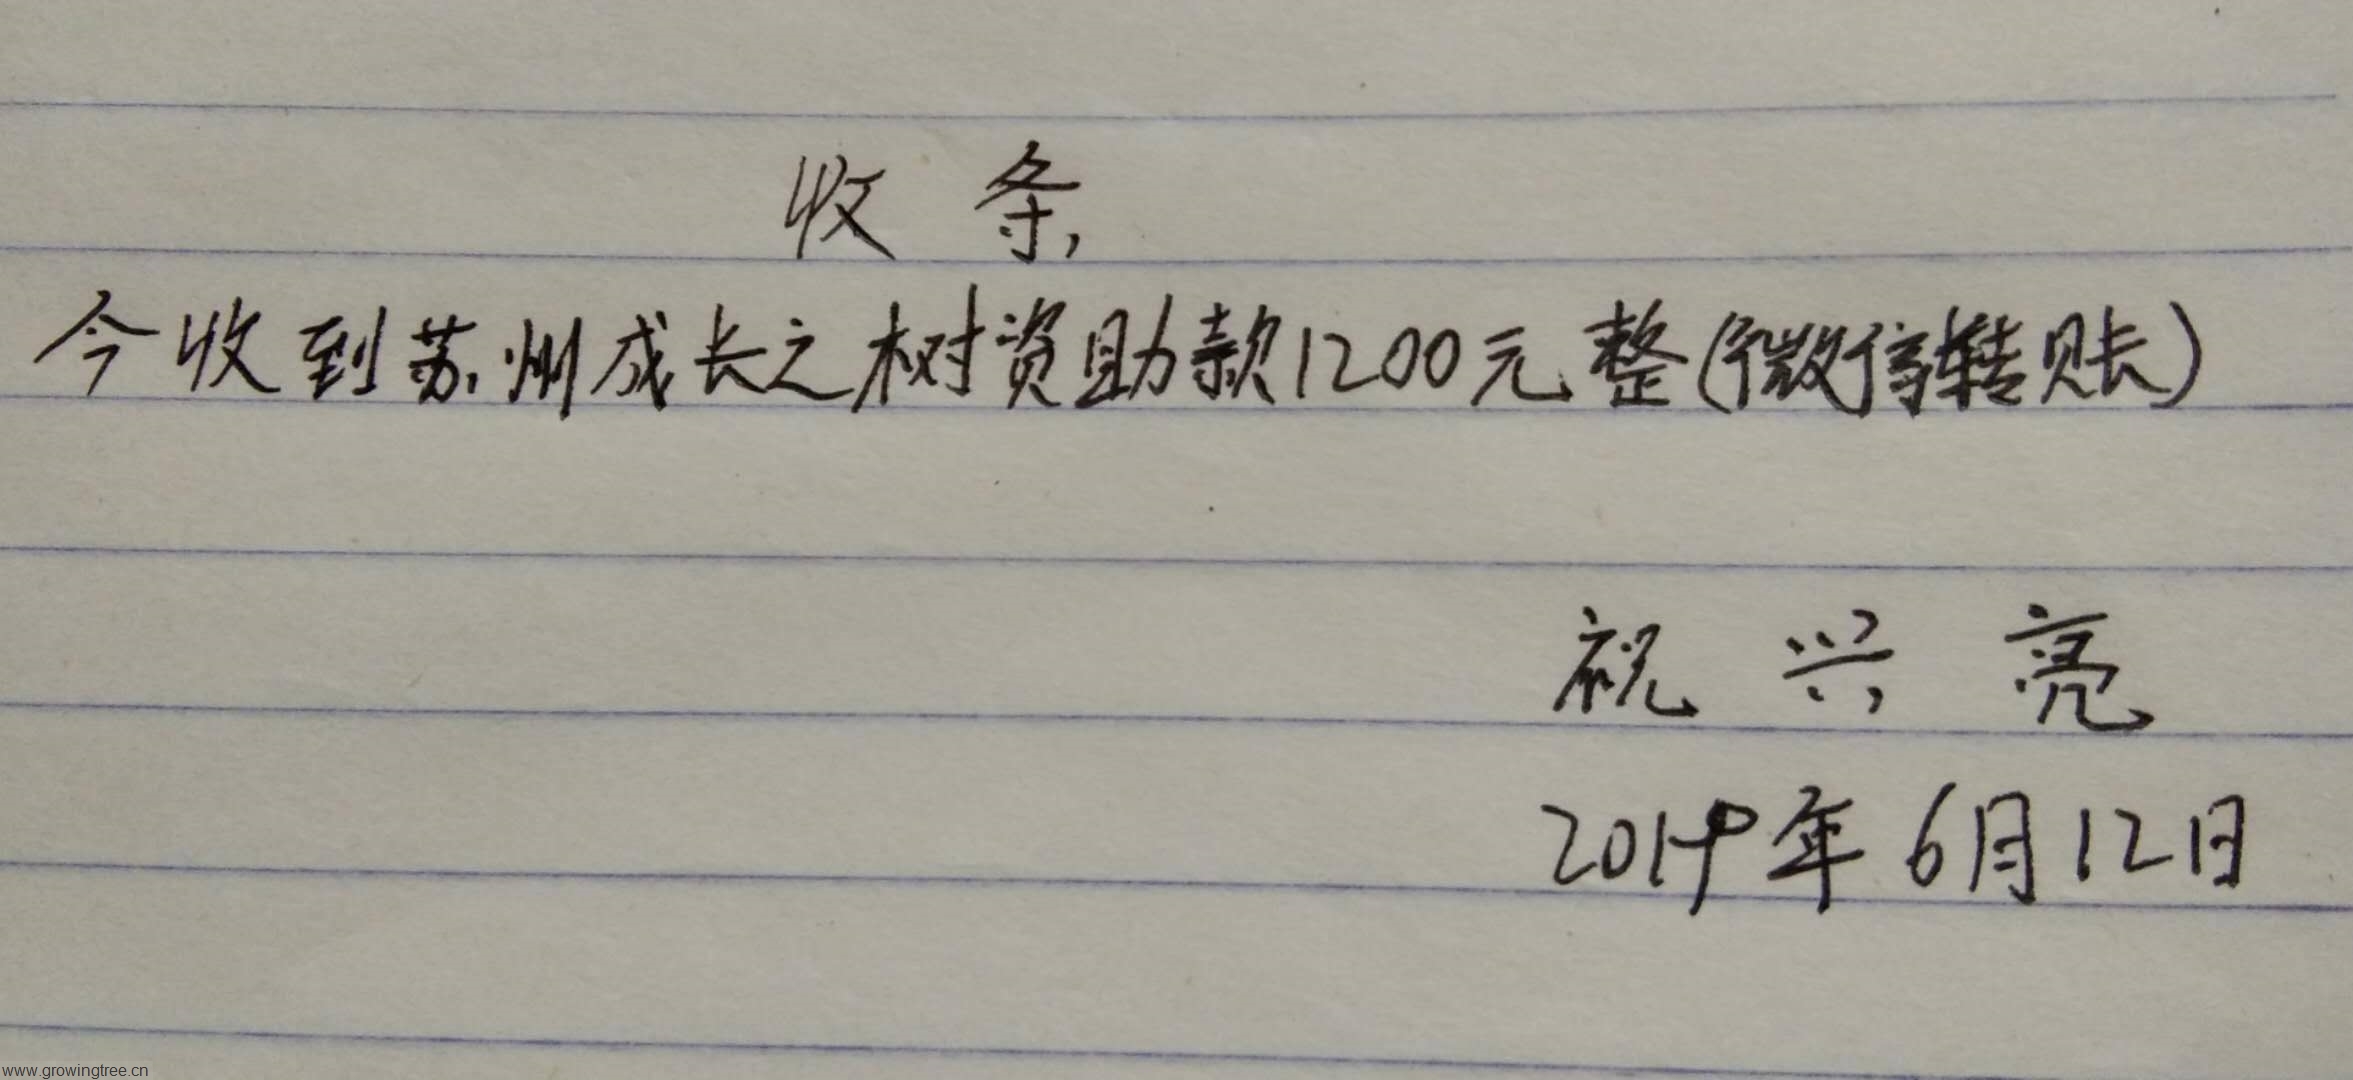 收条
今收到苏州成长之树资助款1200元整(微信转账)
祝兴亮
2019年6月12日
www.growingtree.cn